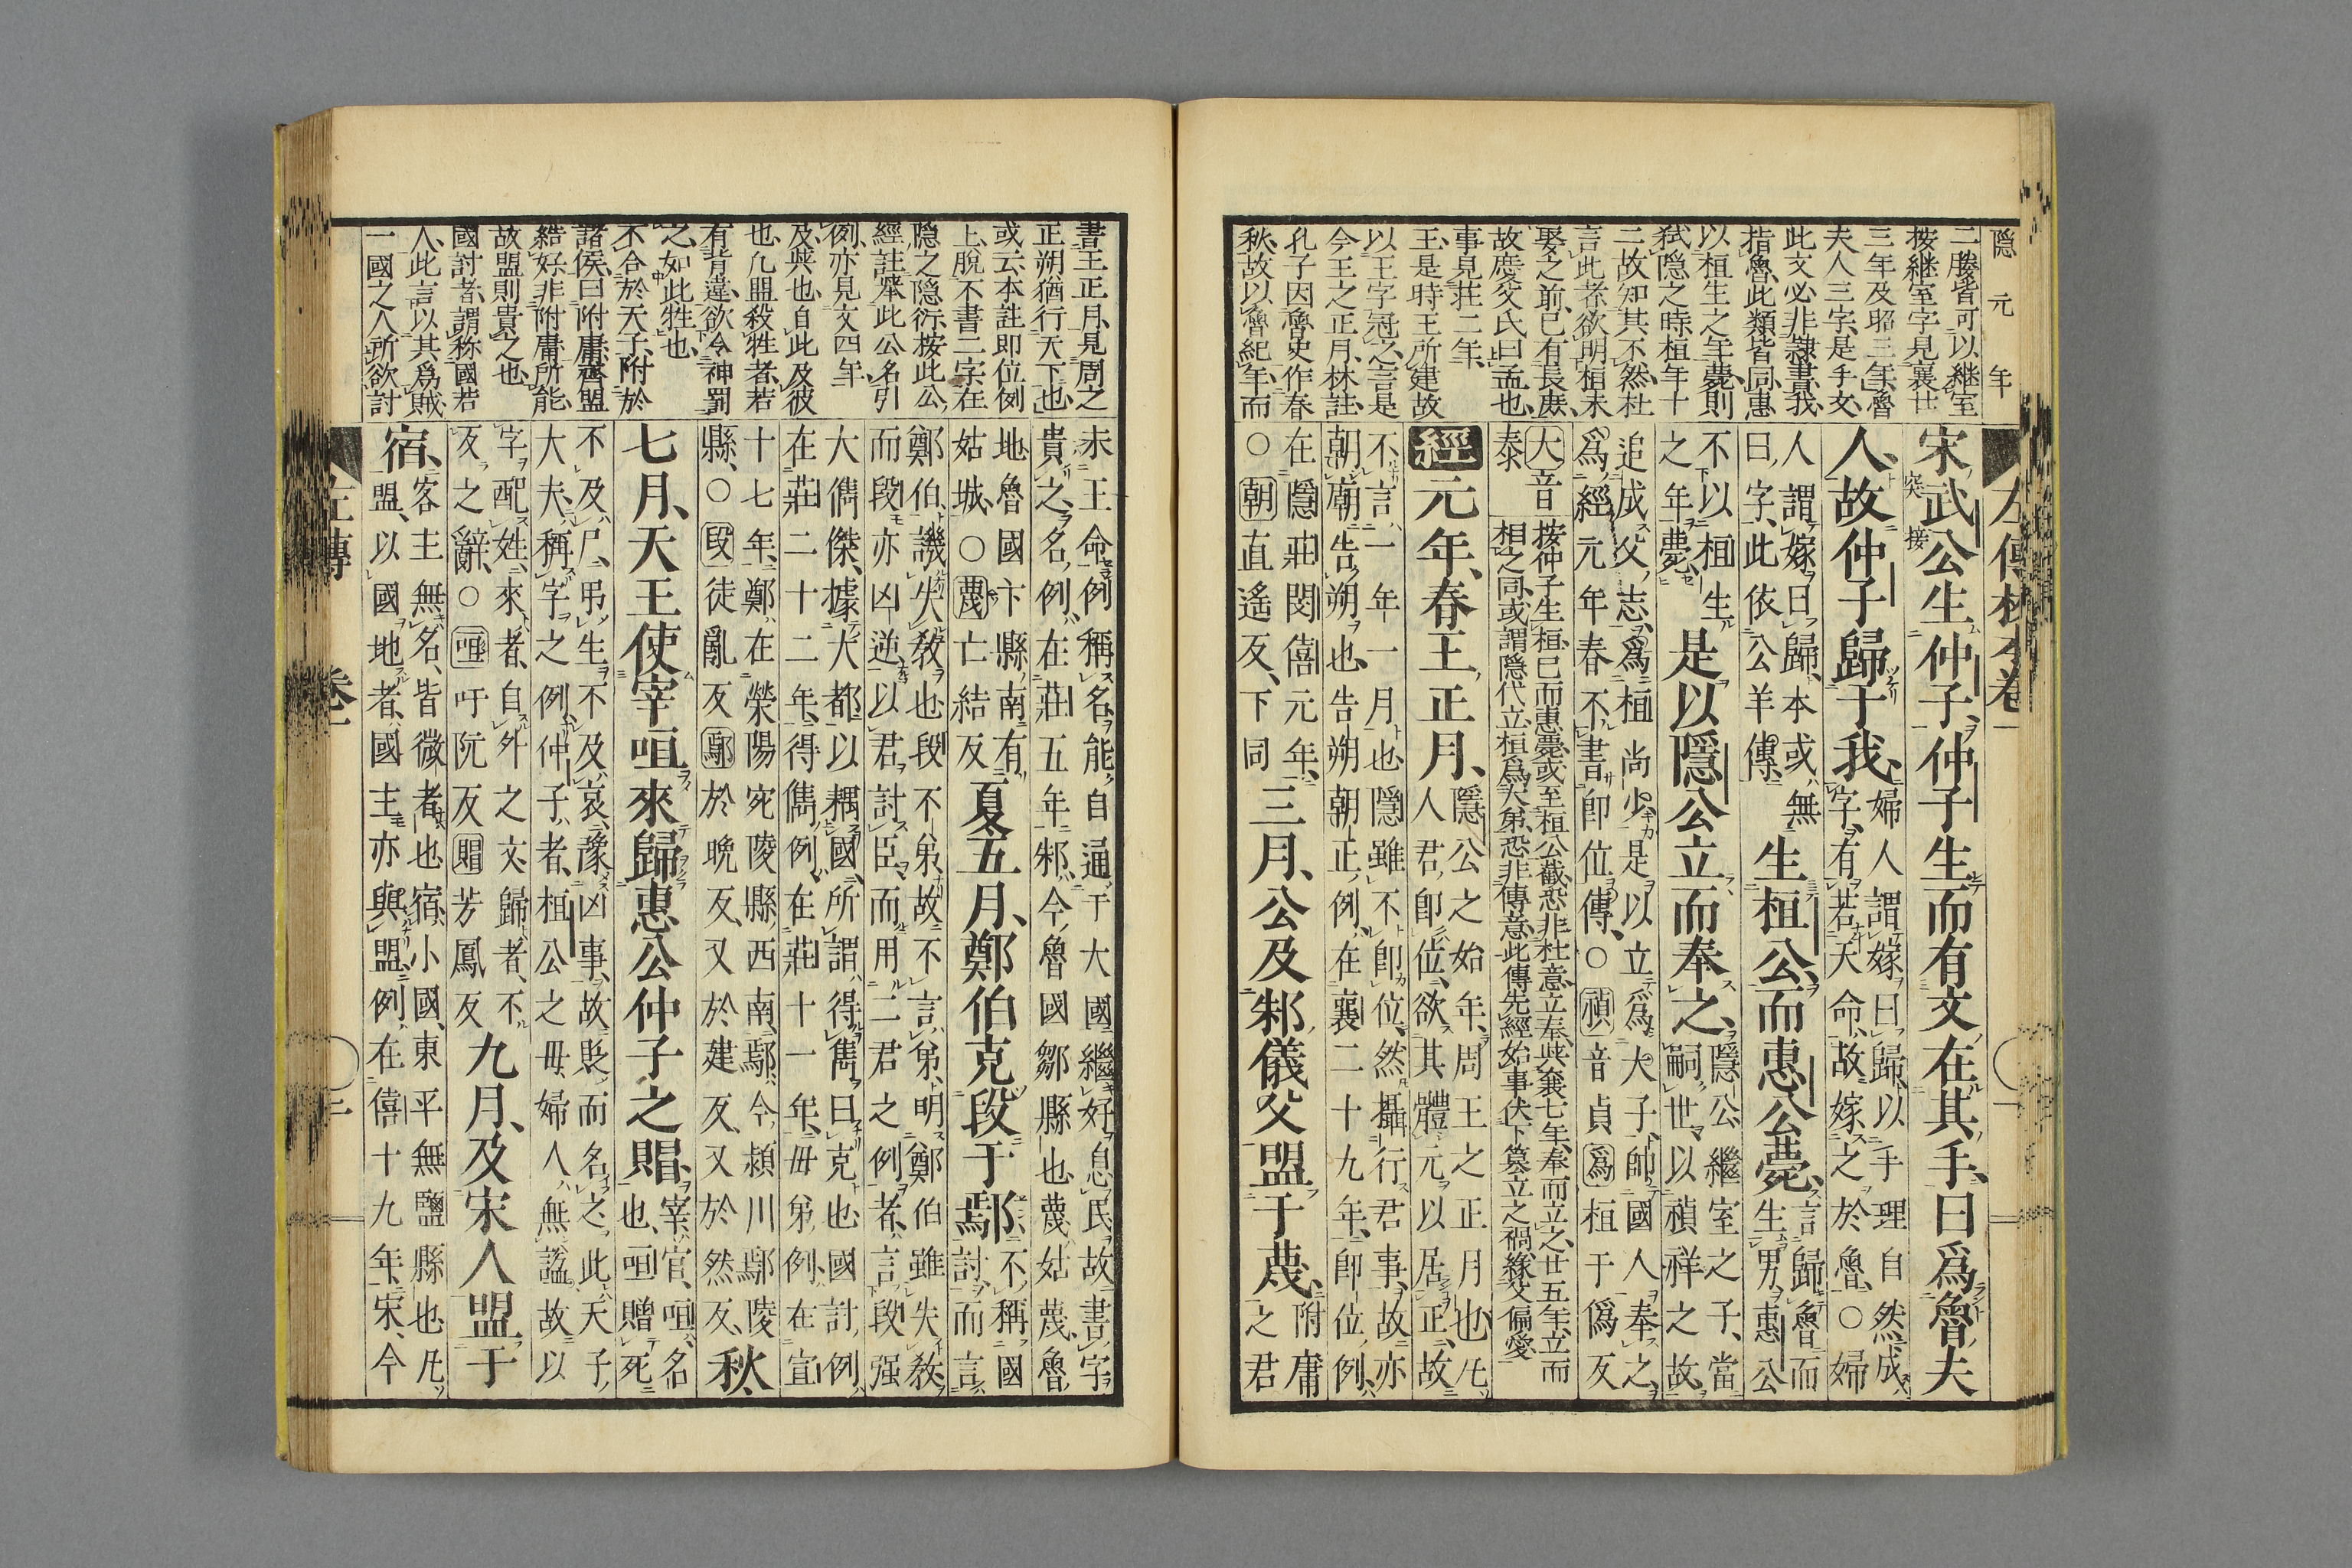 隠元年
二媵皆可以継室
按継室字見襄廿
三年及昭三年魯
夫人三字是手文
此文必非隷書我
指魯此類皆同惠
以桓生之年薨則
弑隠之時桓年十
二故知其不然杜
言此者欲明桓未
娶之前已有長庶
故慶父氏曰孟也
事見荘二年
王是時王所建故
以王字冠之言是
今王之正月林註
孔子因魯史作春
秋故以魯紀年而
宋武公生仲子仲子生而有文在其手曰爲魯夫
人故仲子歸于我
婦人謂嫁曰歸以手理自然成
字有若天命故嫁之於魯○婦
人謂嫁曰歸本或無
曰字此依公羊傳
生桓公而惠公薨
言歸魯而
生男惠公
不以桓生
之年薨
是以隱公立而奉之
隱公繼室之子當
嗣世以禎祥之故
追成父志爲桓尚少是以立爲大子帥國人奉之
爲經元年春不書即位傳○禎音貞爲桓于僞反
大音
泰
按仲子生桓已而惠薨或至桓公截恐非杜意立奉與襄七年奉而立之廿五年立而
相之同或謂隠代立桓爲大弟恐非傳意此傳先經始事伏下簒立之禍緣父偏愛
經元年春王正月
隱公之始年周王之正月也凡
人君即位欲其體元以居正故
不言一年一月也隱雖不即位然攝行君事故亦
朝廟告朔也告朔朝正例在襄二十九年即位例
在隱莊閔僖元年
○朝直遙反下同
三月公及邾儀父盟于蔑
附庸
之君
未王命例稱名能自通于大國繼好息民故書字
貴之名例在莊五年邾今魯國鄒縣也蔑姑蔑魯
地魯國卞縣南有
姑城○蔑亡結反
夏五月鄭伯克段于鄢
不稱國
討而言
鄭伯譏失敎也段不弟故不言弟明鄭伯雖失敎
而段亦凶逆以君討臣而用二君之例者言段强
大儁傑據大都以耦國所謂得雋曰克也國討例
在莊二十二年得儁例在莊十一年毋弟例在宣
十七年鄭在滎陽宛陵縣西南鄢今潁川鄢陵
縣○段徒亂反鄢於晩反又於建反又於然反
秋
七月天王使宰咺來歸惠公仲子之賵
宰官咺名
也咺贈死
不及尸弔生不及哀豫凶事故貶而名之此天子
大夫稱字之例仲子者桓公之毋婦人無謚故以
字配姓來者自外之文歸者不
反之辭○咺吁阮反賵芳鳳反
九月及宋人盟于
宿
客主無名皆微者也宿小國東平無鹽縣也凡
盟以國地者國主亦與盟例在僖十九年宋今
書王正月見周之
正朔猶行天下也
或云本註即位例
上脱不書二字在
隠之隠衍按此公
經註舉此公名引
例亦見文四年
及與也自此及彼
也凡盟殺牲者若
有背違欲令神罰
之如此牲也
不合於天子附於
諸侯曰附庸齊盟
結好非附庸所能
故盟則貴之也
國討者謂称國若
人此言以其爲賊
一國之人所欲討
左傳
卷一